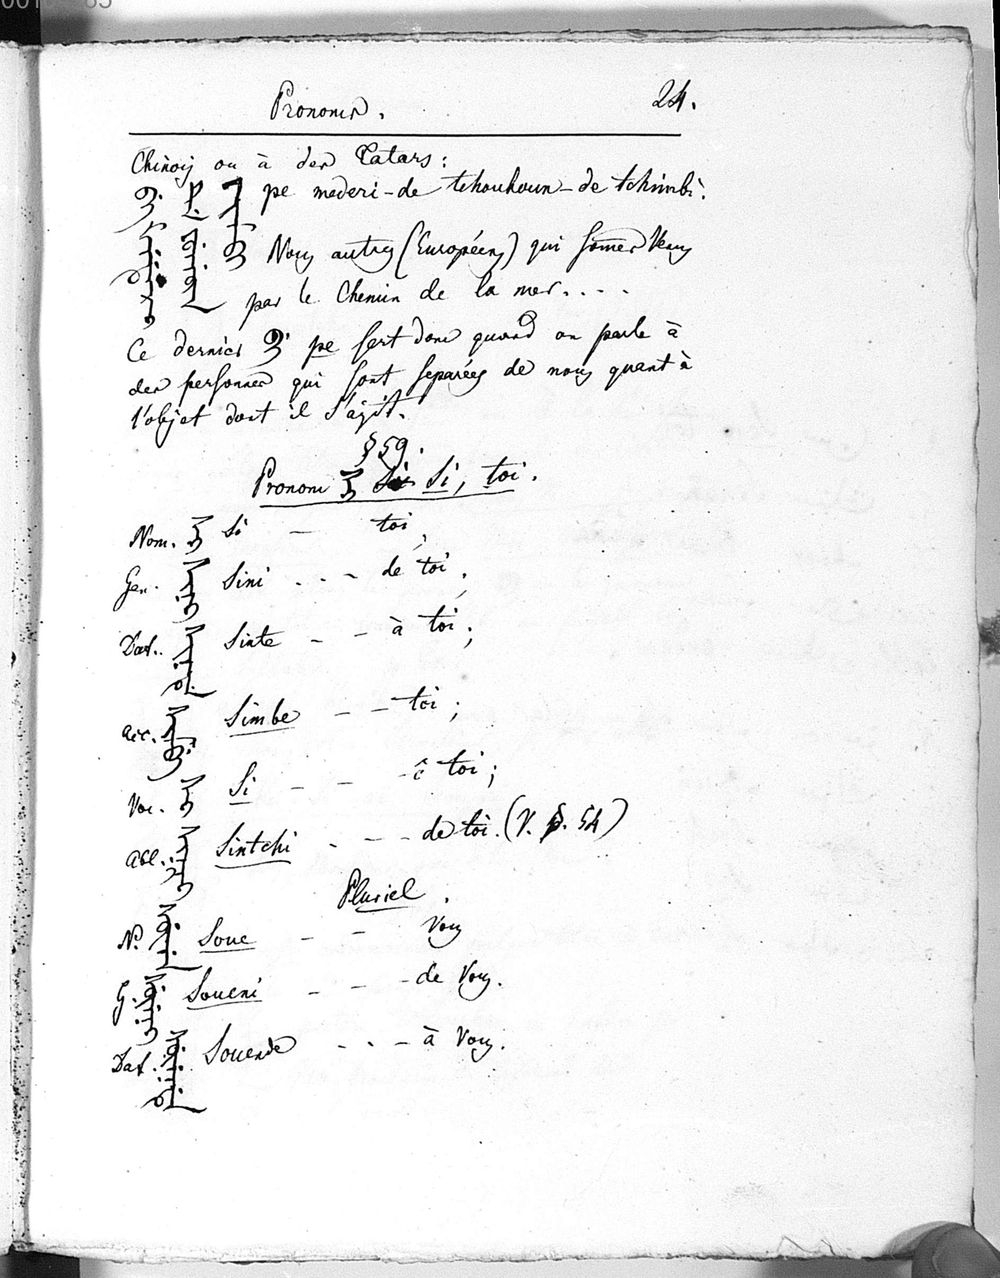 Pronoms. 24.
Chinois ou à des Tatars:
pe mederi-de tchouhoun-de tchimbi.
Nous autres (Européens) qui somes venus
par le Chemin de la mer....
Ce dernier ᠪᡝ pe sert donc quand on parle à
des personnes qui sont separées de nous quant à
l'objet dont il s'agit.
§ 59.
Pronom ᠰᡳ Si, toi.
Nom. ᠰᡳ Si — toi,
Gen. ᠰᡳᠨᡳ Sini ... - de toi,
Dat. ᠰᡳᠨᡩᡝ Sinte - - à toi;
Acc. ᠰᡳᠮᠪᡝ Simbe - - toi;
Voc. ᠰᡳ Si - - - ô toi;
Abl. ᠰᡳᠨᠴᡳ Sintchi - - - de toi. (V. p. 54)
Pluriel.
N. ᠰᡠᠸᡝ Soue - - Vous
G. ᠰᡠᠸᡝᠨᡳ Soueni - - - de Vous.
Dat. ᠰᡠᠸᡝᠨᡩᡝ Souende - - - à Vous.